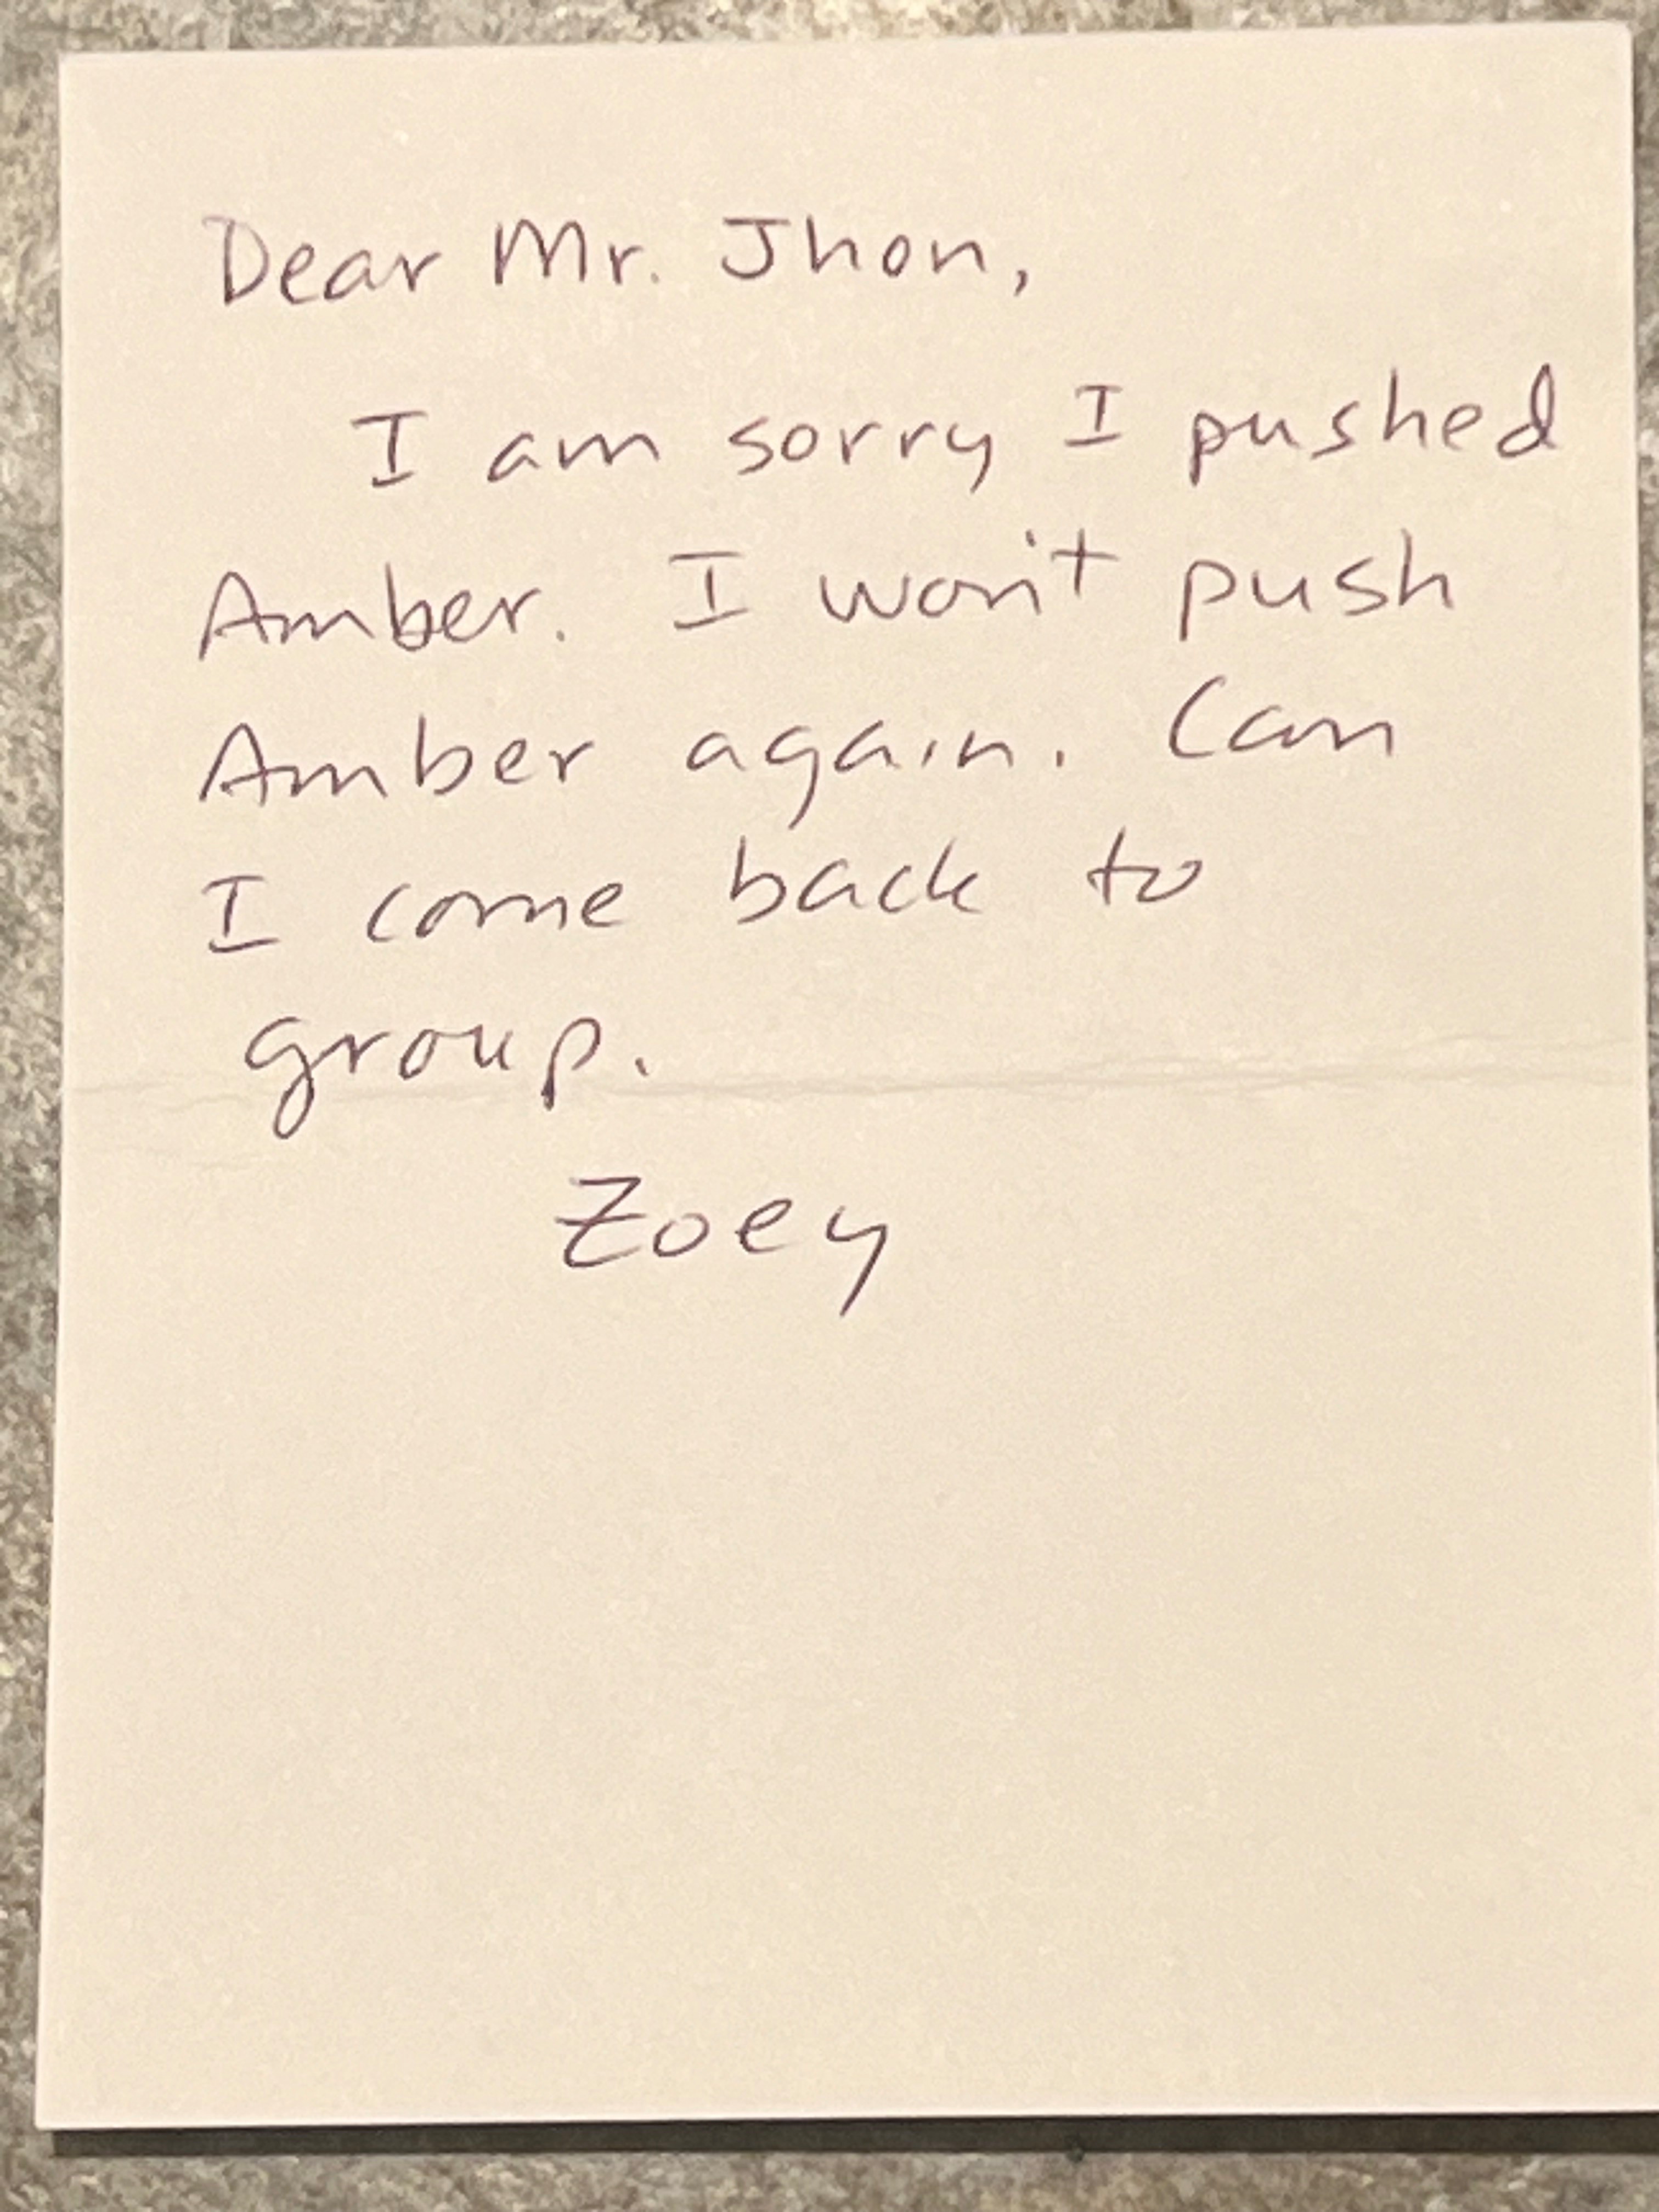 Dear Mr. Jhon,
I am sorry I pushed
Amber. I won't push
Amber again. Can
I come back to
group.
Zoey